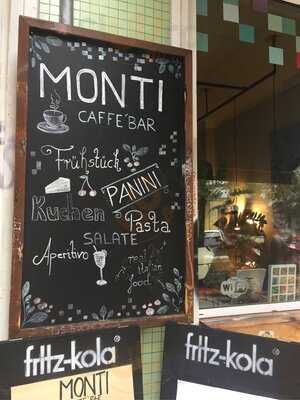 MONTI
MONTI
CAFFE'BAR
Frühstück
PANINI
Kuchen
Pasta
SALATE
Aperitivo
real
italian
food
fritz-kola®
fritz-kola®
MONTI